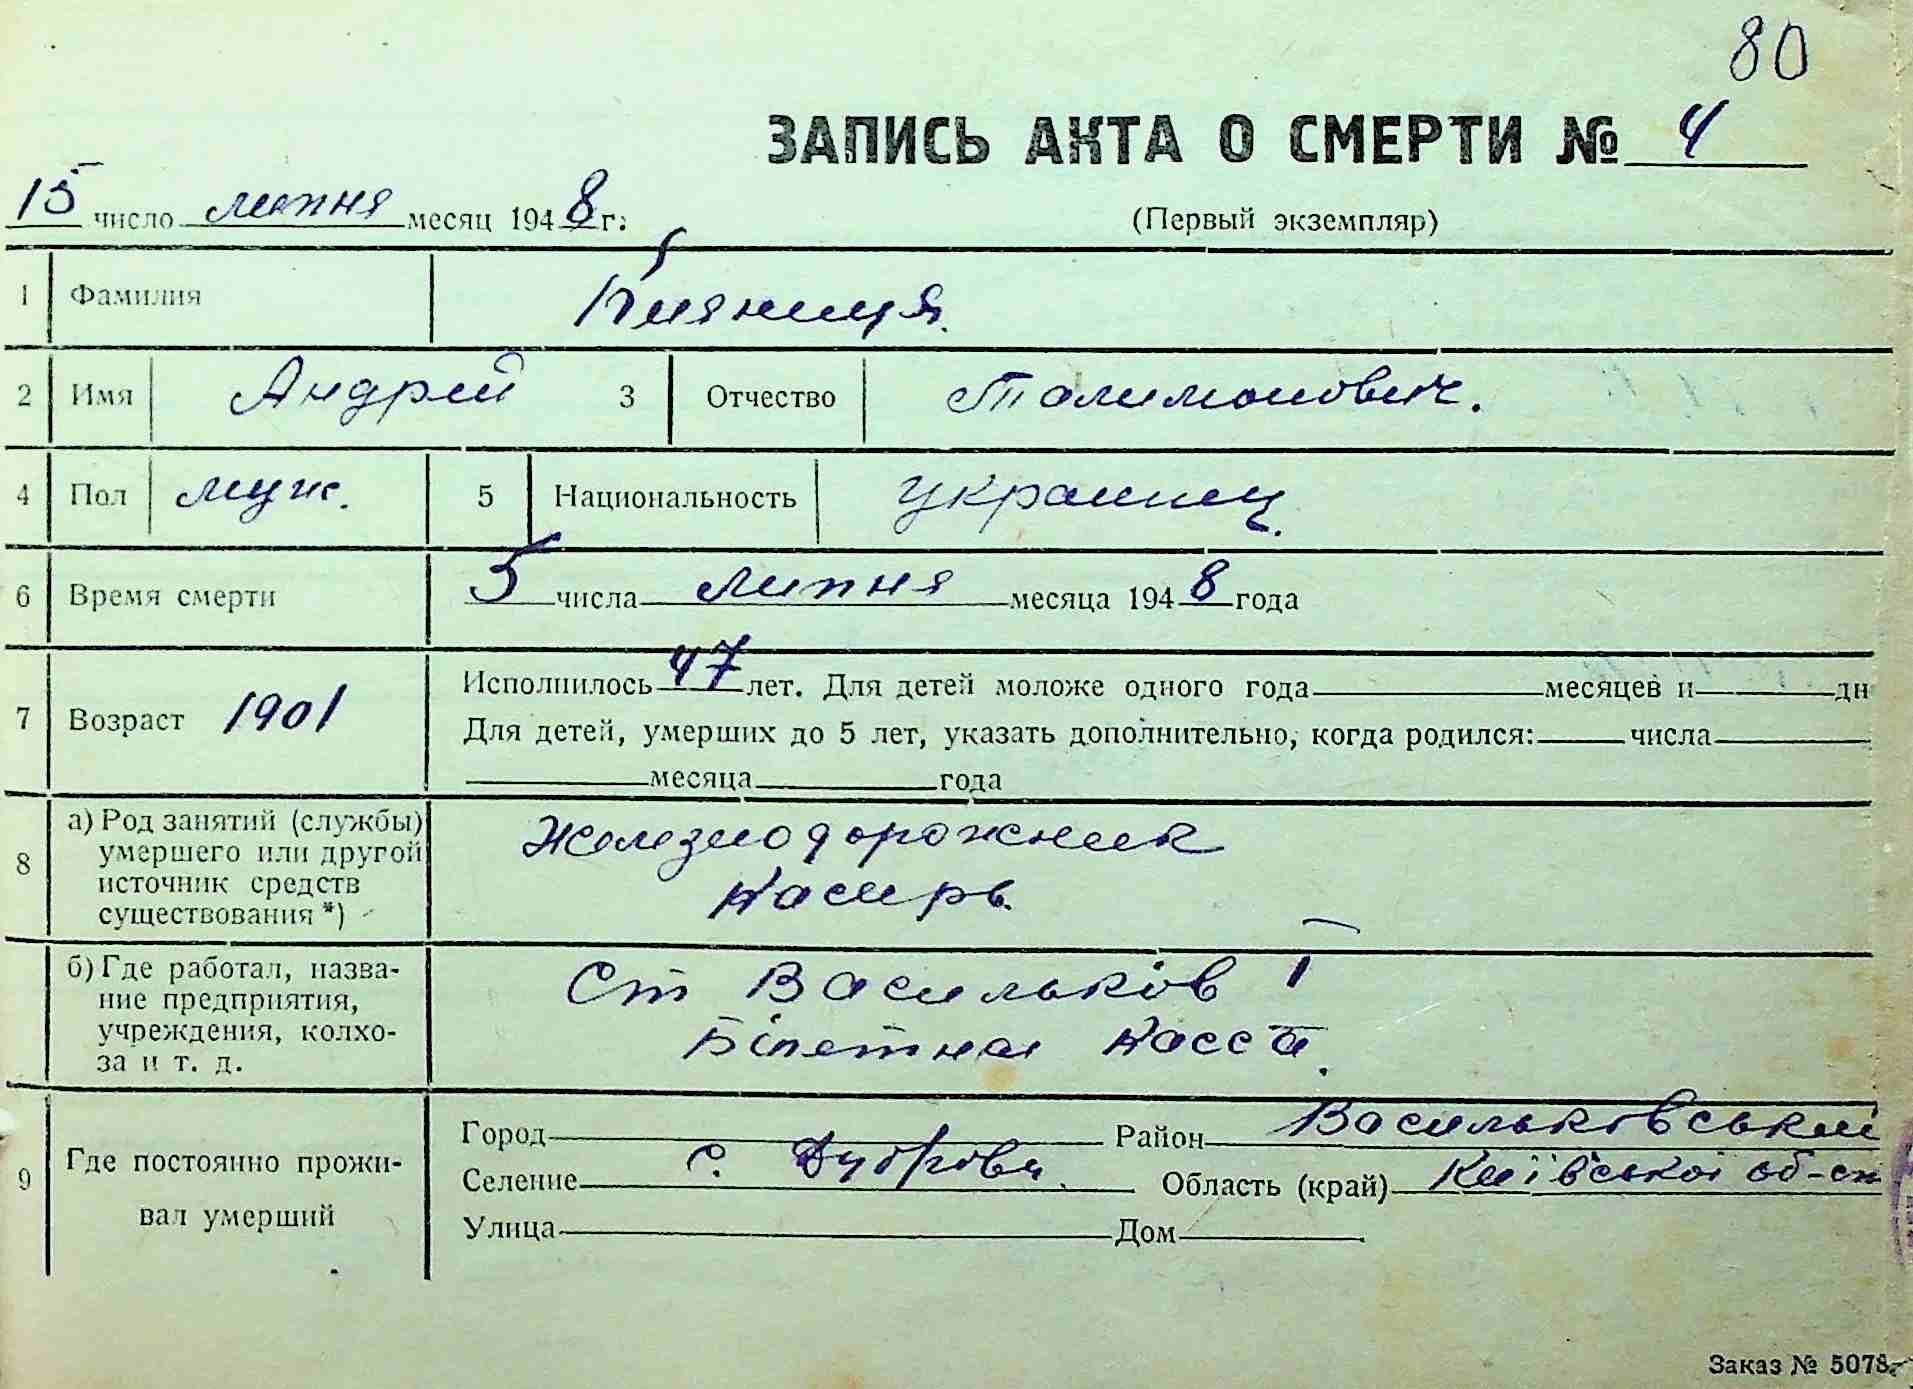 80
ЗАПИСЬ АКТА О СМЕРТИ № 4
15 число липня месяц 1948 г.
(Первый экземпляр)
1 Фамилия
2 Имя Андрей 3 Отчество Толимонович.
4 Пол муж. 5 Национальность украинец.
6 Время смерти 5 числа липня месяца 1948 года
7 Возраст 1901 Исполнилось 47 лет. Для детей моложе одного года месяцев и дн
Для детей, умерших до 5 лет, указать дополнительно, когда родился: числа
месяца года
8 а) Род занятий (службы) умершего или другой источник средств существования *)
Железнодорожник
Касирь.
б) Где работал, название предприятия, учреждения, колхоза и т. д.
Ст Васильків I
Білетная касса.
9 Где постоянно проживал умерший
Город Район Васильковський
Селение с. Дуброви Область (край) Київської об-сти
Улица Дом
Заказ № 5078.